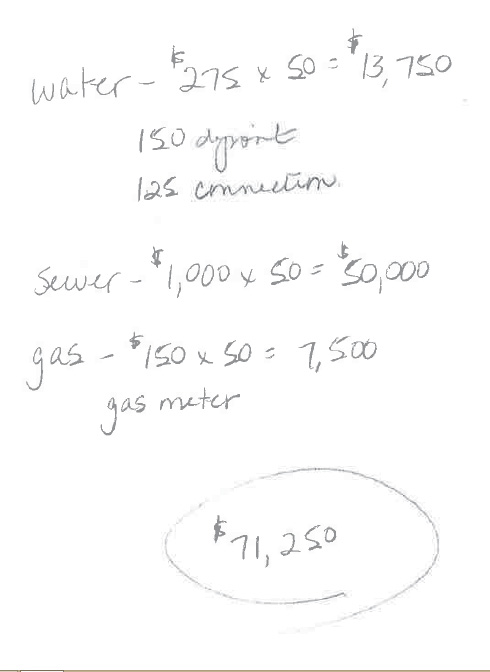 water - $275 x 50 = $13,750
150 deposit
125 connection
sewer - $1,000 x 50 = $50,000
gas - $150 x 50 = 7,500
gas meter
$71,250